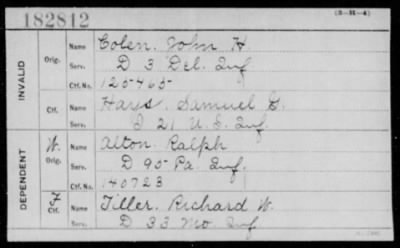 182812
(3—H—4)
INVALID
Orig. Name Colen. John H.
Serv. D 3 Del. Inf.
Ctf. No. 125465
Ctf. Name Hays. Samuel
Serv. I 21 U.S. Inf.
DEPENDENT
W. Orig. Name Alton. Ralph
Serv. D 95 Pa. Inf.
Ctf. No. 140723
F Ctf. Name Tiller. Richard W.
Serv. D 33 Mo. Inf